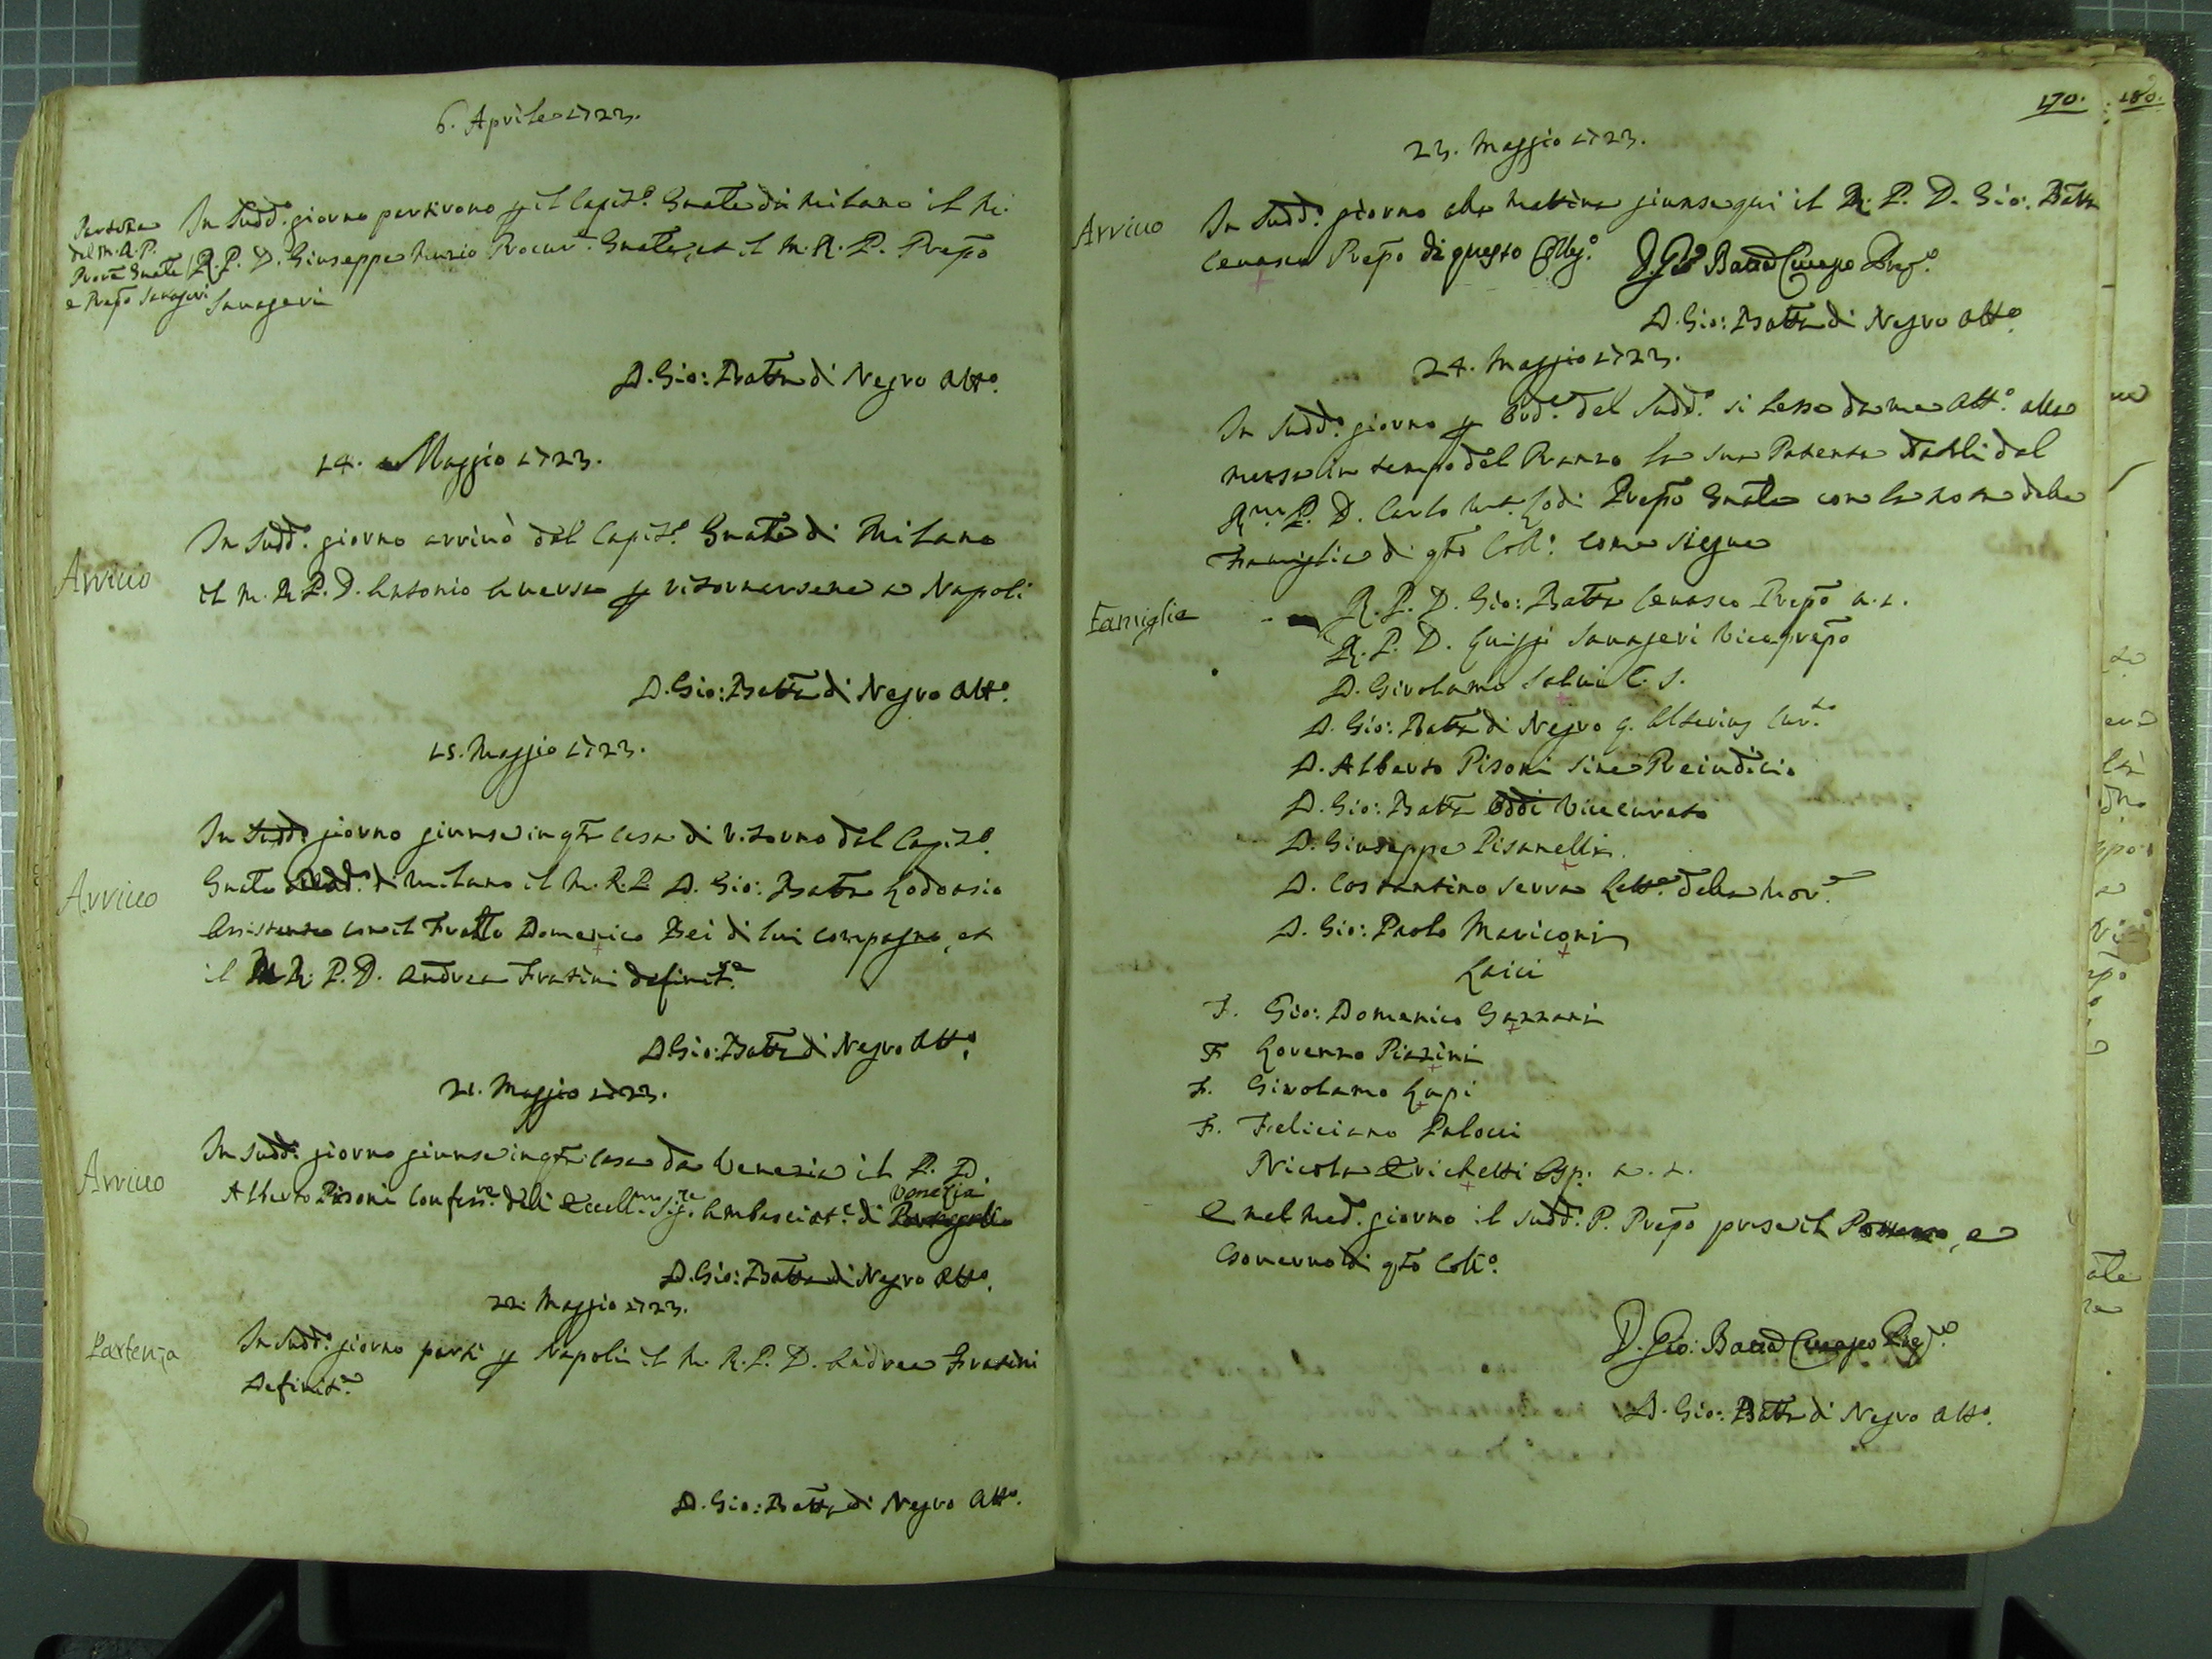 6. Aprile 1723.
Partita
del M. R. P.
Procũr Gn̄ale
e Prep̄o Savageri
In Sudd.º giorno partirono p il Capit.º Gn̄ale di Milano il M.
R. P. D. Giuseppe Muzio Procur.e Gn̄ale, et il M. R. P. Prep̄o
Savageri
D. Gio: Batt̄a di Negro Att.º
14. Maggio 1723.
Arrivo
In Sudd.º giorno arrivò dal Capit.º Gn̄ale di Milano
il M. R. P. D. Antonio Aversa p ritornarsene a Napoli
D. Gio: Batt̄a di Negro Att.º
15. Maggio 1723.
Arrivo
In Sudd.º giorno giunse in q̄ta Casa di ritorno dal Capit.º
Gn̄ale di Milano il M. R. P. D. Gio: Batt̄a Lodovasio
Assistente con il Fratello Domenico Bei di lui compagno, et
il M R. P. D. Andrea Fratini definit.re
D. Gio: Batt̄a di Negro Att.º
21. Maggio 1723.
Arrivo
In Sudd.º giorno giunse in q̄ta Casa da Venezia il P. D.
Alberto Pisoni Confess.re dell' Eccell.mo Sig.re Ambasciat.e di Venezia
D. Gio: Batt̄a di Negro Att.º
22. Maggio 1723.
Partenza
In Sudd.º giorno partì p Napoli il M. R. P. D. Andrea Fratini
Definit.re
D. Gio: Batt̄a di Negro Att.º
170. 180.
23. Maggio 1723.
Arrivo
In Sudd.º giorno alla mattina giunse qui il M. R. P. D. Gio: Batt̄a
Cevasco Prep̄o di questo Colleg.º D. Gio Batta Cevasco Prep.º
D. Gio: Batt̄a di Negro Att.º
24. Maggio 1723.
In Sudd.º giorno p Ord.e del Sudd.º si lesse da me Att.º alla
mensa in tempo del Pranzo la sua Patente dal
R.mo P. D. Carlo M.a Lodi Prep̄o Gn̄ale con la nota della
Famiglia di q̄to Coll.º come siegue
Famiglia
R. P. D. Gio: Batt̄a Cevasco Prep̄o a. 1.
R. P. D. Luiggi Savageri Viceprep̄o
D. Girolamo Salvi C. S.
D. Gio: Batt̄a di Negro q. Alterius Cur.to
D. Alberto Pisoni Sine Preiudicio
D. Gio: Batt̄a Oddi Vicecurato
D. Giuseppe Pisanelli
D. Costantino Serra Lett.e della Mor.e
D. Gio: Paolo Mariconi
Laici
F. Gio: Domenico Gazzari
F Lorenzo Piazini
F. Girolamo Lupi
F. Feliciano Palocci
Nicola Erichetti Osp. a. 1.
E nel med.º giorno il Sudd.º P. Prep̄o prese il Possesso, e
Governo di q̄to Coll.º
D. Gio: Batta Cevasco Prep.º
D. Gio: Batt̄a di Negro Att.º